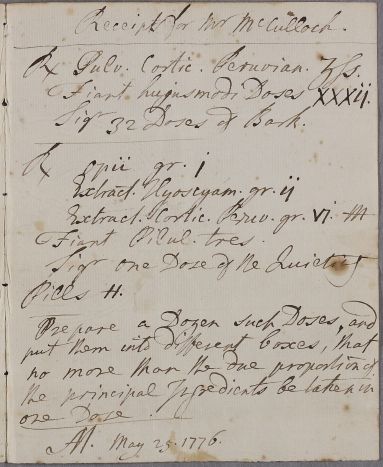 Receipt for Mr McCulloch.
Rx Pulv. Cortic. Peruvian. ℥ss.
Fiant hujusmodi Doses XXXII.
Sigr 32 Doses of Bark.
Rx Opii gr. i
Extract. Hyoscyam. gr. ij
Extract. Cortic. Peruv. gr. vi.
Fiant Pilul. tres.
Sigr one Dose of the Quieting
Pills H.
Prepare a Dozen such Doses, and
put them into different boxes, that
no more than the due proportion of
the principal Ingredients be taken in
one Dose.
May 25. 1776.